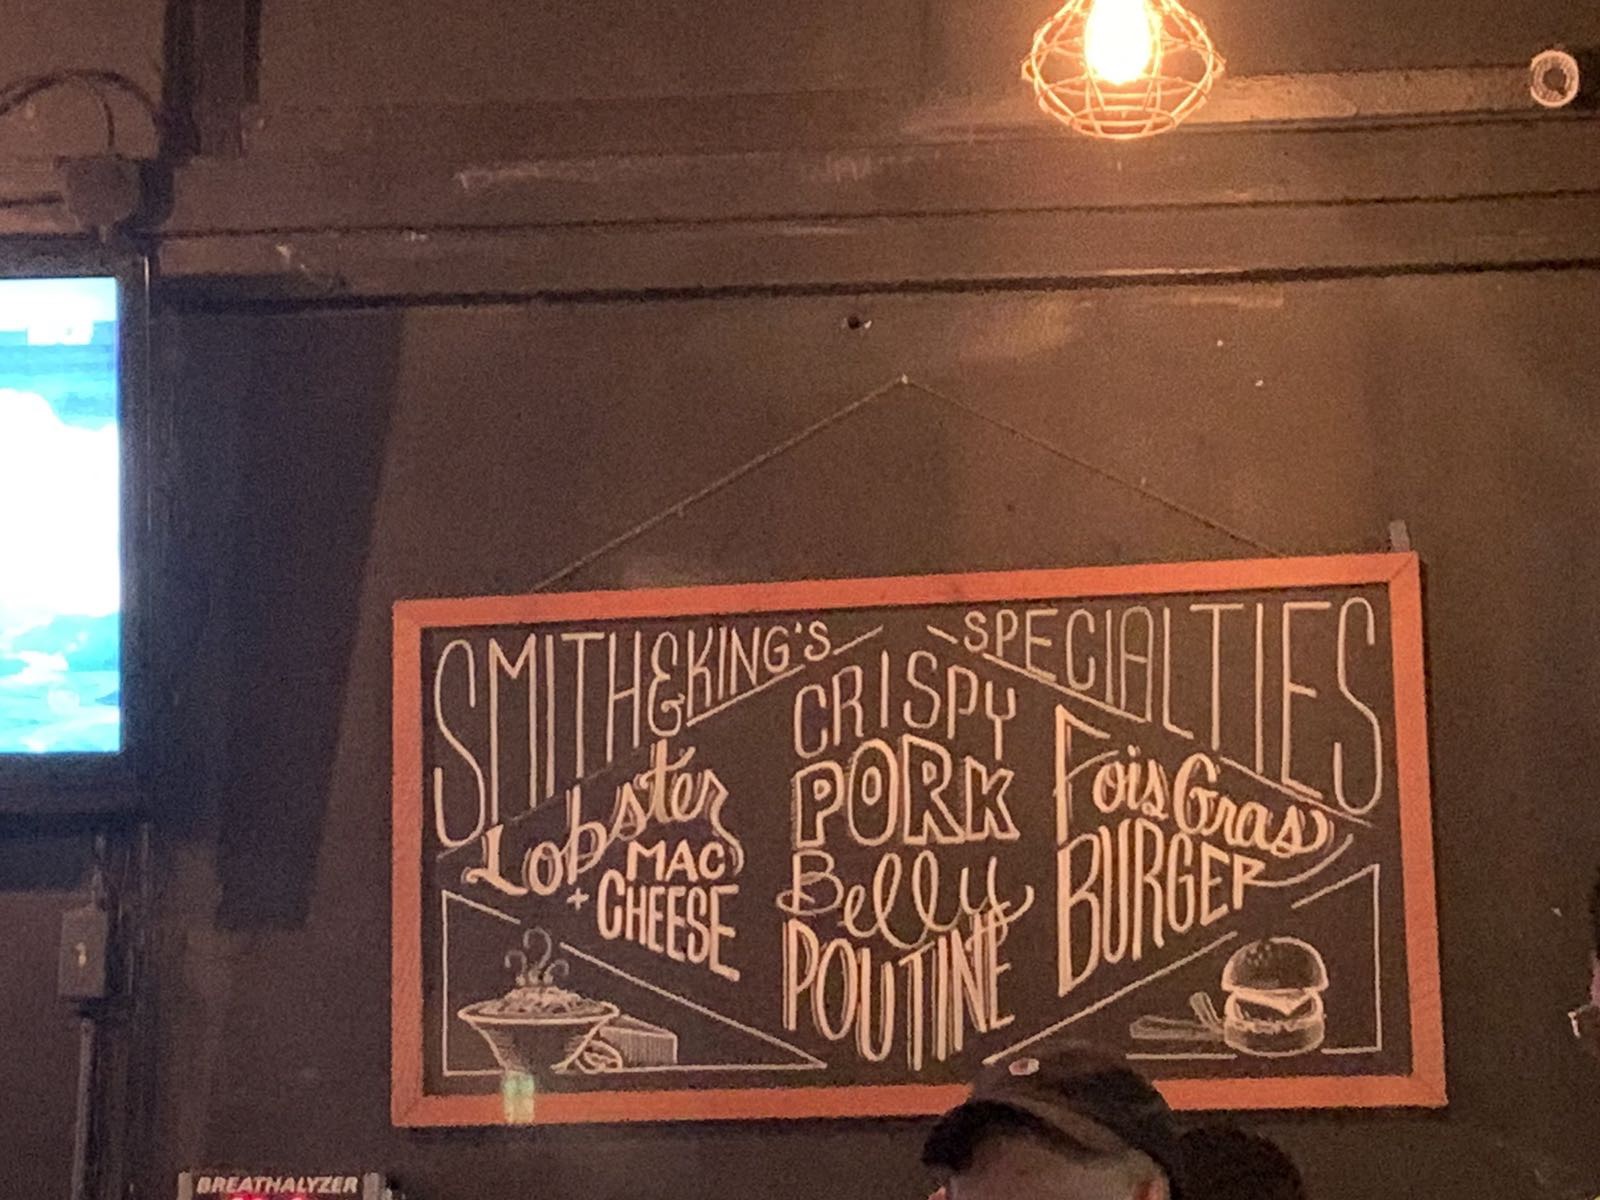 SMITH&KING'S SPECIALTIES
Lobster
MAC
+ CHEESE
CRISPY
PORK
Belly
POUTINE
Fois Gras
BURGER
BREATHALYZER